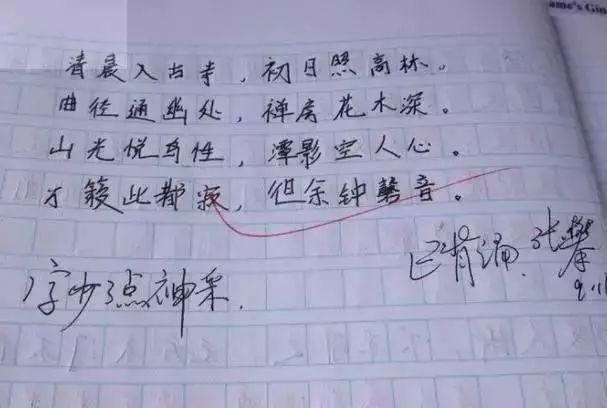 ame's Gin
清晨入古寺，初日照高林。
曲径通幽处，禅房花木深。
山光悦鸟性，潭影空人心。
万籁此都寂，但余钟磬音。
已背诵.张攀
9.11
字少了点神采.